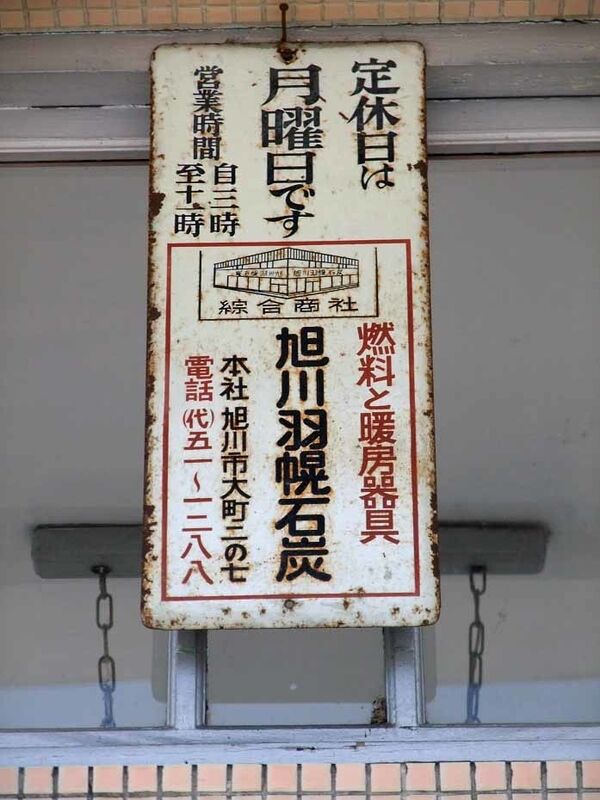 定休日は
月曜日です
営業時間
自三時
至十一時
綜合商社
燃料と暖房器具
旭川羽幌石炭
本社 旭川市大町二の七
電話(代)五一〜一二八八